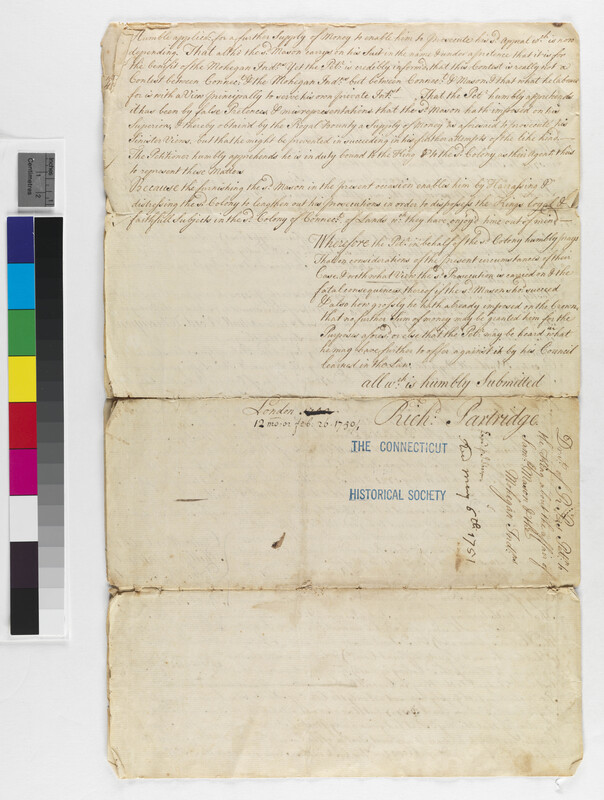 Humble applicn. for a further Supply of Money to enable him to Prosecute his sd. Appeal wch. is now
depending. That altho' the sd. Mason carrys on his Suit in the name & under pretence that it is for
the benefit of the Mohegan Indns. Yet the Petr. is credibly informed that this Contest is really not a
Contest between Connect. & the Mohegan Indns. but between Connect. & Mason & that what he labours
for is with a View principally to serve his own private Intt. That the Petr. humbly apprehends
it has been by false Pretences & misrepresentations that the sd. Mason hath imposed on his
Superiors & thereby obtained by the Royal Bounty a Supply of Money as aforesaid to prosecute his
Sinister Views, but that he might be prevented in succeeding in his further attempts of the like kind
The Petitioner humbly apprehends he is in duty bound to the King & to the sd. Colony as their Agent thus
to represent these Matters
Because the furnishing the sd. Mason in the present occasion enables him by Harrassing &
distressing the sd. Colony to lengthen out his prosecutions in order to dispossess the Kings Loyal &
faithfull Subjects in the sd. Colony of Connect. of Lands wch. they have enjoyed time out of mind
Wherefore the Petr. in behalf of the sd. Colony humbly prays
That in considerations of the present circumstances of their
Case & with what View the sd. Prosecution is carried on & the
fatal consequences thereof if the sd. Mason shod. succeed
& also how grossly he hath already imposed on the Crown
that no further Sum of money may be granted him for the
Purposes aforesd. or else that the Petr. may be heard what
he may have further to offer against it by his Council
learned in the Law.
all wch. is humbly Submitted
Richd: Partridge
London
12 mo. or feb. 26. 1750/1
THE CONNECTICUT
HISTORICAL SOCIETY
Recd may 6th 1751
Mohegan Indns
Saml. Mason & the
Centimetres
Inches